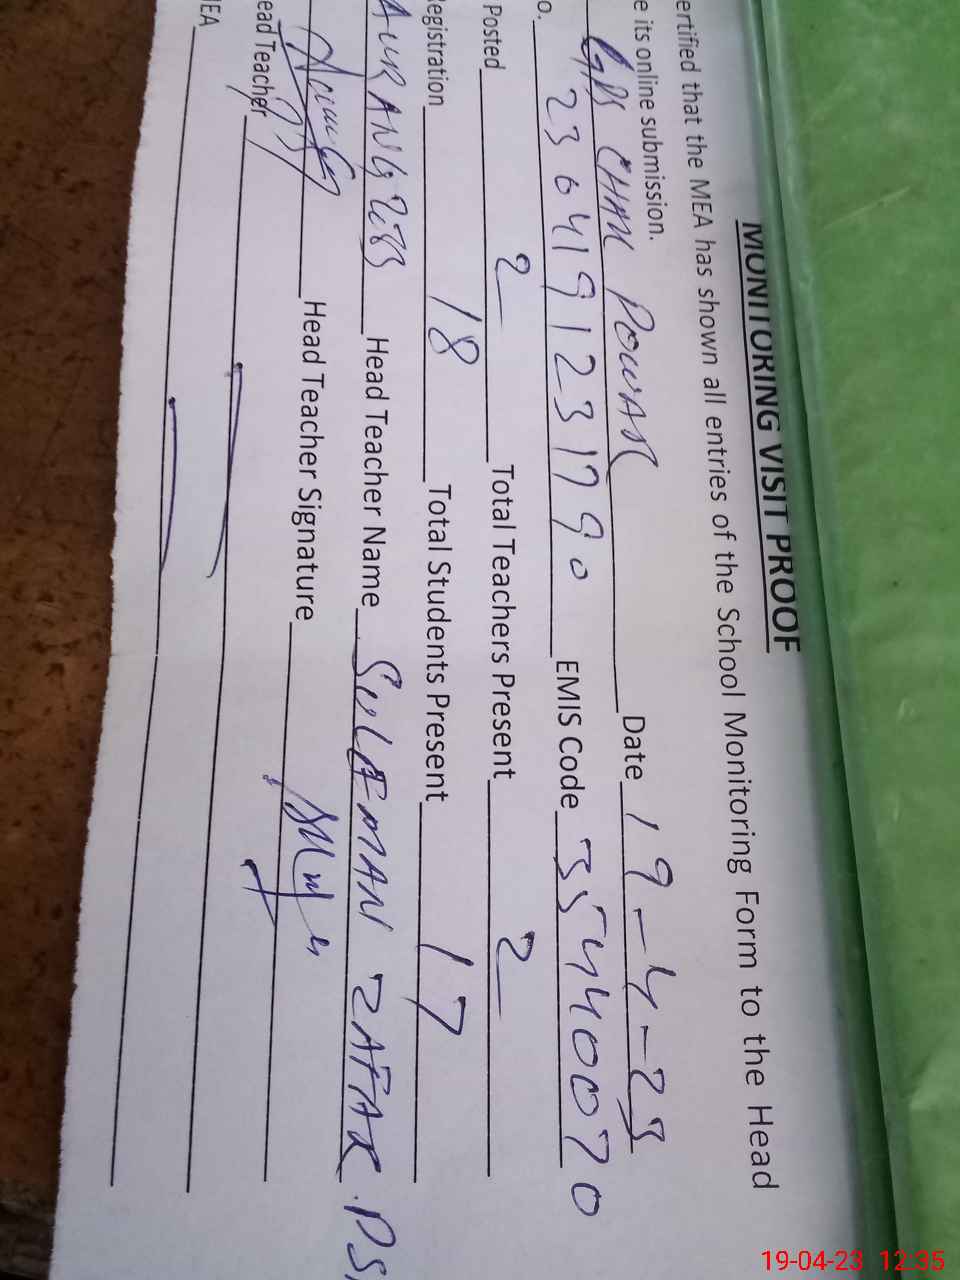 MONITORING VISIT PROOF
ertified that the MEA has shown all entries of the School Monitoring Form to the Head
e its online submission.
GPS CHAK POWAR Date 19-4-23
o. 23041912317790 EMIS Code 35440070
Posted 2 Total Teachers Present 2
egistration 18 Total Students Present 17
AURANGZEB Head Teacher Name SULEMAN ZAFAR. PS
Head Teacher Signature
ead Teacher
MEA
19-04-23 12:35